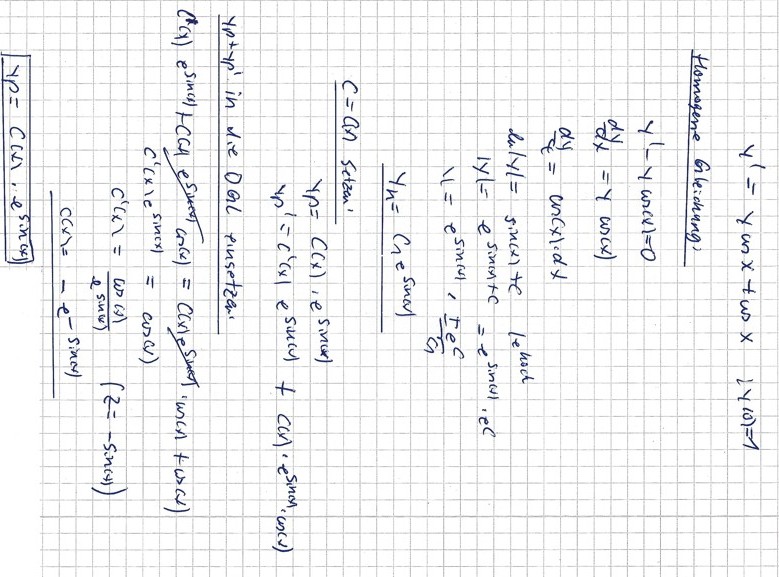 y' = y cos x + cos x | y(0)=1
Homogene Gleichung:
y' - y cos(x) = 0
dy/dx = y cos(x)
dy/y = cos(x) · dx
ln|y| = sin(x) + C | e hoch
|y| = e^{sin(x)+C} = e^{sin(x)} · e^C
y = e^{sin(x)} · ±e^C
C1
yh = C1 e^{sin(x)}
C = C(x) setzen:
yp = C(x) · e^{sin(x)}
yp' = C'(x) e^{sin(x)} + C(x) · e^{sin(x)} · cos(x)
yp + yp' in die DGL einsetzen:
C'(x) e^{sin(x)} + C(x) e^{sin(x)} cos(x) = C(x) e^{sin(x)} · cos(x) + cos(x)
C'(x) e^{sin(x)} = cos(x)
C'(x) = cos(x)/e^{sin(x)} (z = -sin(x))
C(x) = - e^{-sin(x)}
yp = C(x) · e^{sin(x)}